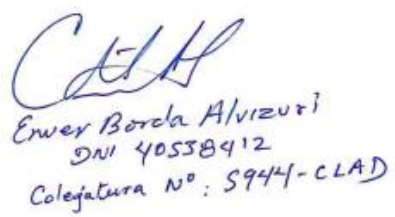 Enver Borda Alvizuri
DNI 40538412
Colegiatura N° : 5944-CLAD